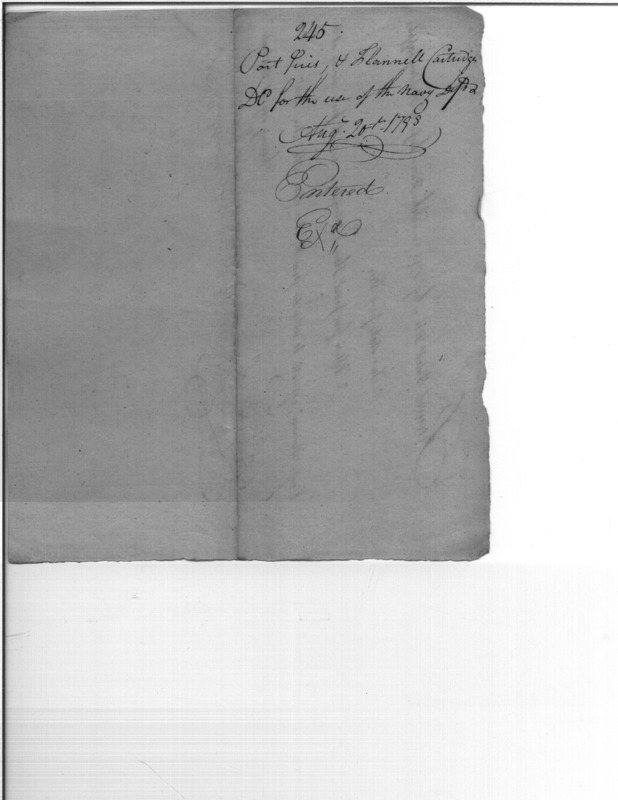 245.
Port fires, & Flannell Cartridge
Do for the use of the Navy Dept
Augt. 20th. 1798
Entered.
Exd